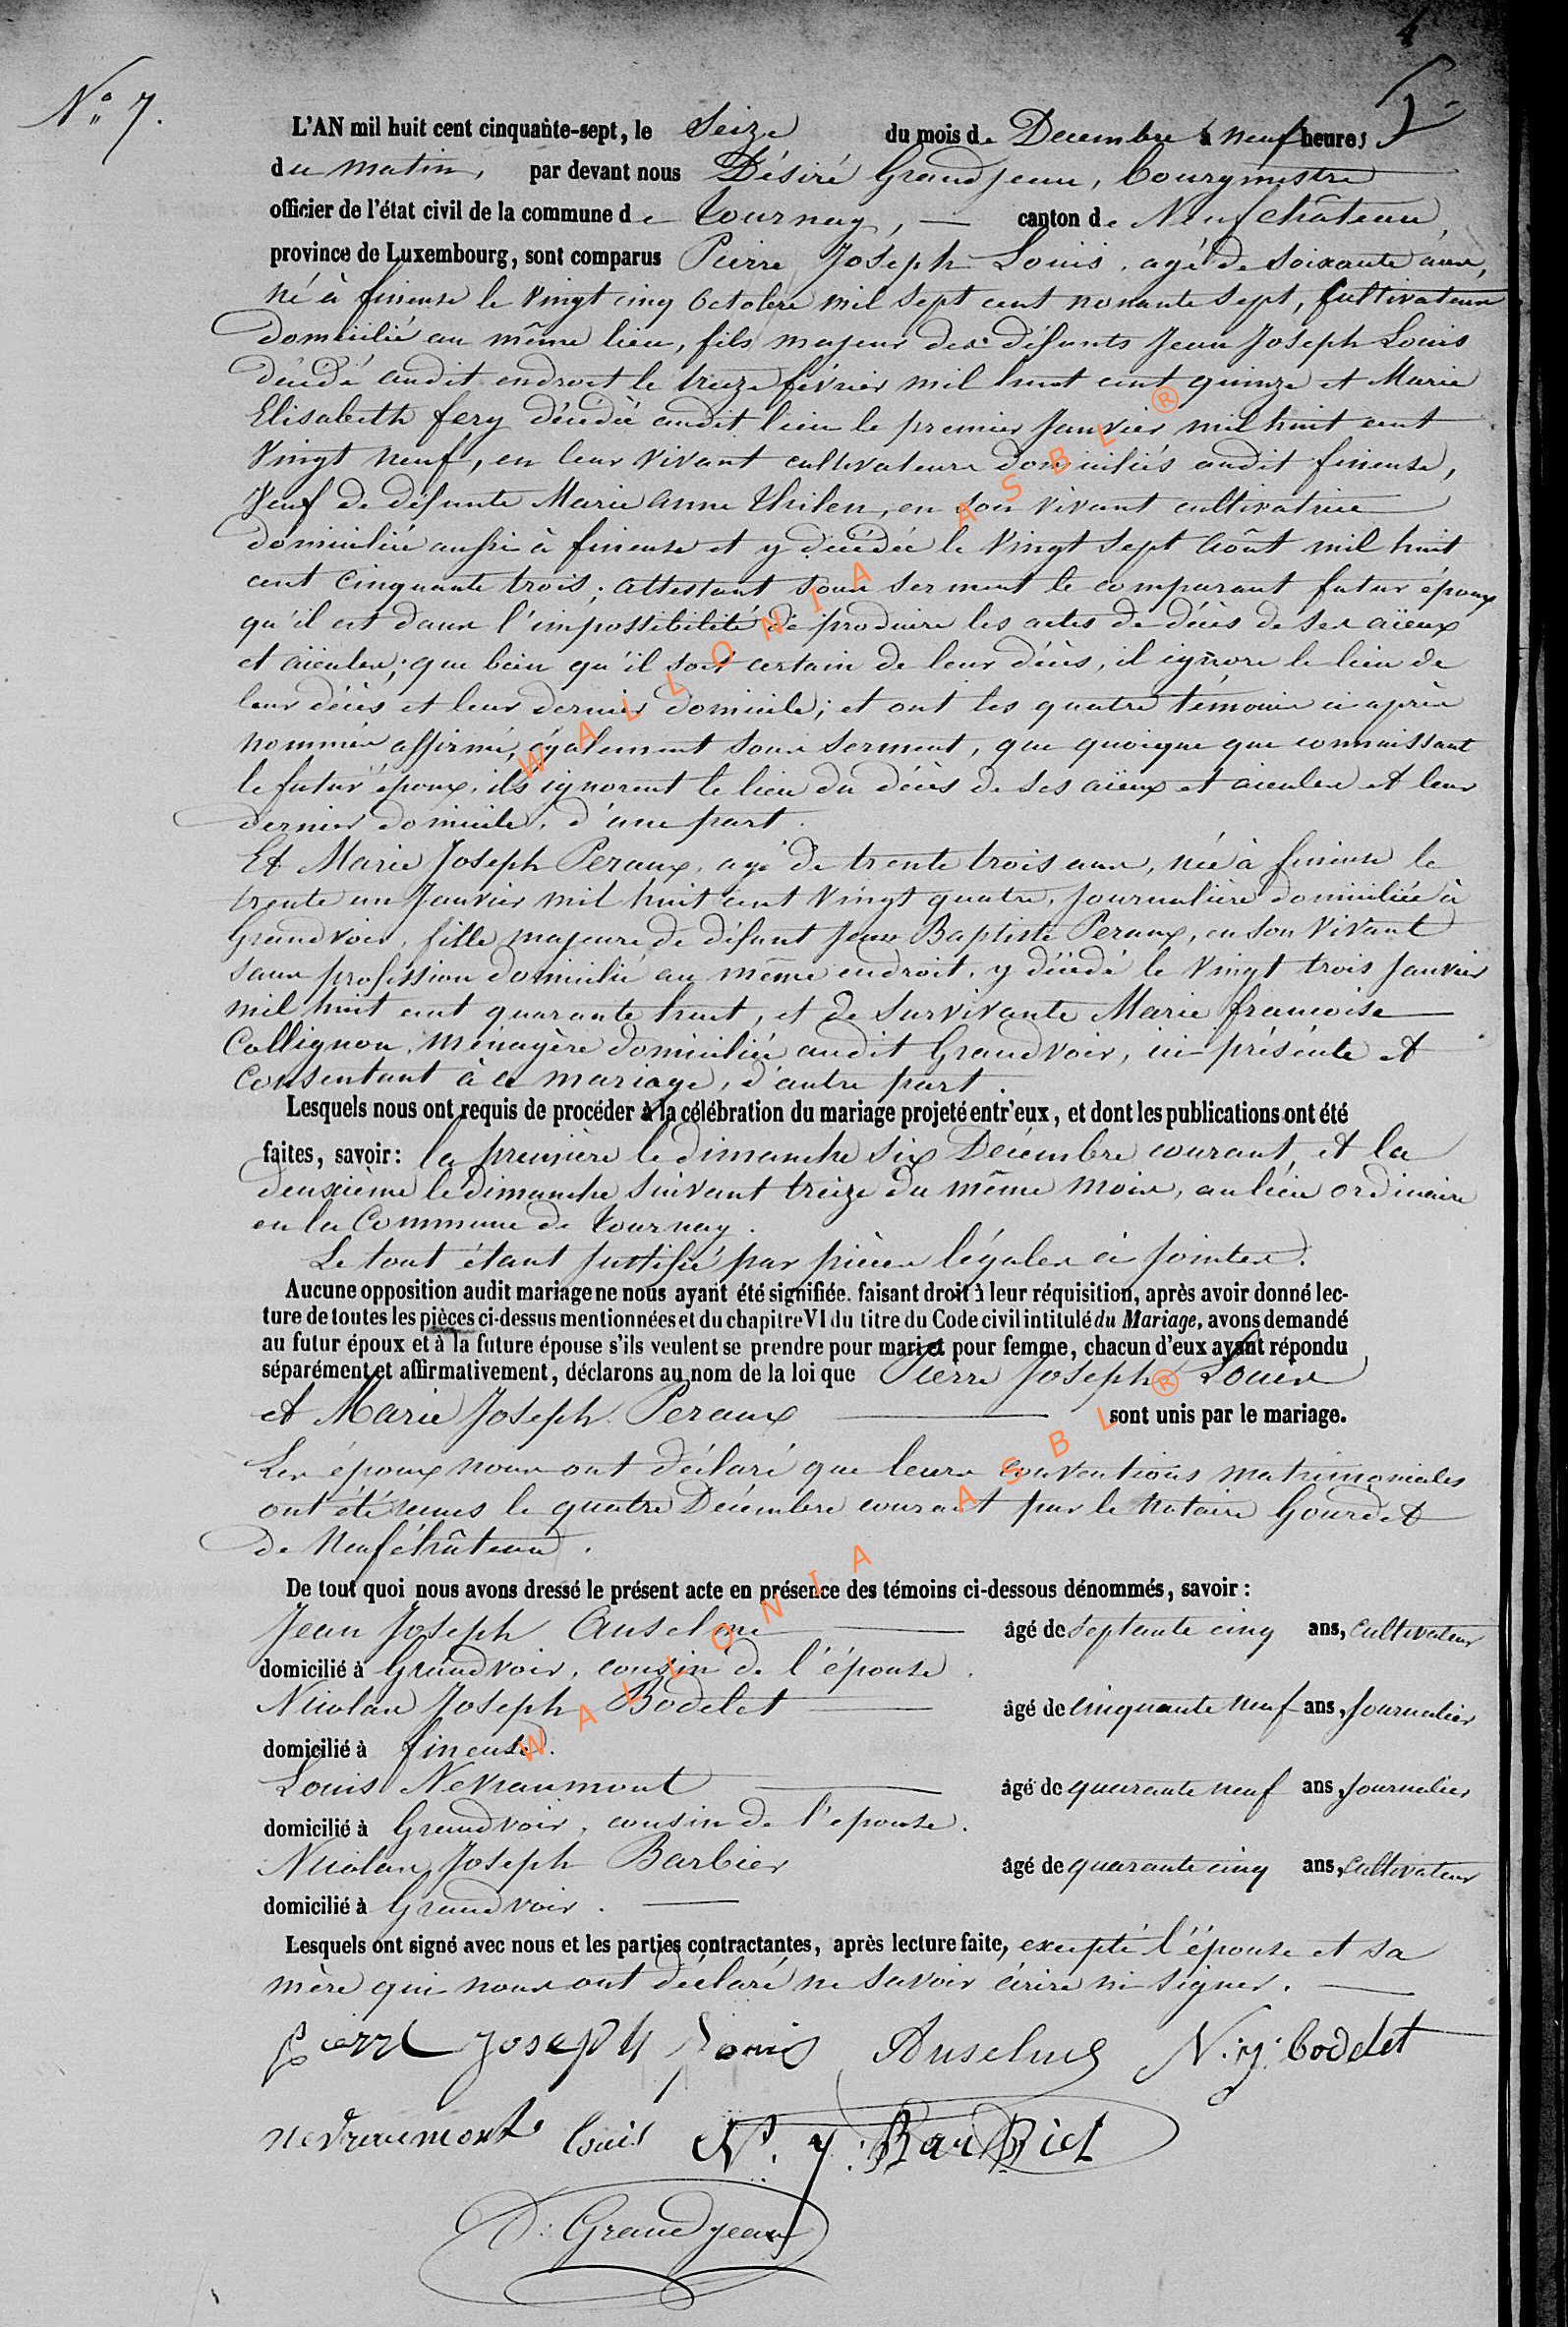 4
N° 7.
L'AN mil huit cent cinquante-sept, le Seize du mois de Decembre à neuf heures
du matin, par devant nous Désiré Grandjean, bourgmestre
officier de l'état civil de la commune de tournay, canton de Neufchâteau,
province de Luxembourg, sont comparus Pierre Joseph Louis, agé de soixante ans,
né à fineuse le vingt cinq Octobre mil sept cent nonante sept, Cultivateur
domicilié au même lieu, fils majeur des défunts Jean Joseph Louis
décédé audit endroit le treize février mil huit cent quinze et Marie
Elisabeth fery décédée audit lieu le premier Janvier mil huit cent
Vingt neuf, en leur vivant cultivateurs domiciliés audit fineuse,
Veuf de défunte Marie anne thilen, en son vivant cultivatrice
domiciliée aussi à fineuse et y décédée le Vingt sept Août mil huit
cent cinquante trois; attestant sous serment le comparant futur époux
qu'il est dans l'impossibilité de produire les actes de décès de ses aïeux
et aïeules; que bien qu'il soit certain de leur décès, il ignore le lieu de
leur décès et leur dernier domicile; et ont les quatre témoins ci après
nommés affirmé, également sous serment, que quoique que connaissant
le futur époux, ils ignorent le lieu du décès de ses aïeux et aieules et leur
dernier domicile, d'une part.
Et Marie Joseph Peraux, agé de trente trois ans, née à fineuse le
trente un Janvier mil huit cent Vingt quatre, Journalière domiciliée à
Grandvoir, fille majeure de défunt Jean Baptiste Peraux, en son Vivant
sans profession domicilié au même endroit, y décédé le Vingt trois Janvier
mil huit cent quarante huit, et de survivante Marie francoise
Collignon, Ménagère domiciliée audit Grandvoir, ici présente et
Consentant à ce mariage, d'autre part.
Lesquels nous ont requis de procéder à la célébration du mariage projeté entr'eux, et dont les publications ont été
faites, savoir: la première le dimanche six Décembre courant, et la
deuxième le dimanche suivant treize du même mois, au lieu ordinaire
en la Commune de tournay.
Le tout étant justifié par pièces légales ci jointes.
Aucune opposition audit mariage ne nous ayant été signifiée. faisant droit à leur réquisition, après avoir donné lec-
ture de toutes les pièces ci-dessus mentionnées et du chapitre VI du titre du Code civil intitulé du Mariage, avons demandé
au futur époux et à la future épouse s'ils veulent se prendre pour mari et pour femme, chacun d'eux ayant répondu
séparément et affirmativement, déclarons au nom de la loi que Pierre Joseph Louis
et Marie Joseph Peraux sont unis par le mariage.
Les époux nous ont déclaré que leurs conventions matrimoniales
ont été reçues le quatre Décembre courant par le Notaire Gourdet
de Neufchâteau.
De tout quoi nous avons dressé le présent acte en présence des témoins ci-dessous dénommés, savoir:
Jean Joseph Anselme âgé de septante cinq ans, cultivateur
domicilié à Grandvoir, cousin de l'épouse.
Nicolas Joseph Bodelet âgé de cinquante neuf ans, Journalier
domicilié à fineuse.
Louis Nevraumont âgé de quarante neuf ans, Journalier
domicilié à Grandvoir, cousin de l'epouse.
Nicolas Joseph Barbier âgé de quarante cinq ans, Cultivateur
domicilié à Grandvoir.
Lesquels ont signé avec nous et les parties contractantes, après lecture faite, excepté l'épouse et sa
mère qui nous ont déclaré ne savoir écrire ni signer.
pierre joseph Louis Anselme N: j: bodelet
nevraumont louis N. j: BarBiet
D: Grandjean
WALLONIA ASBL ®
WALLONIA ASBL ®